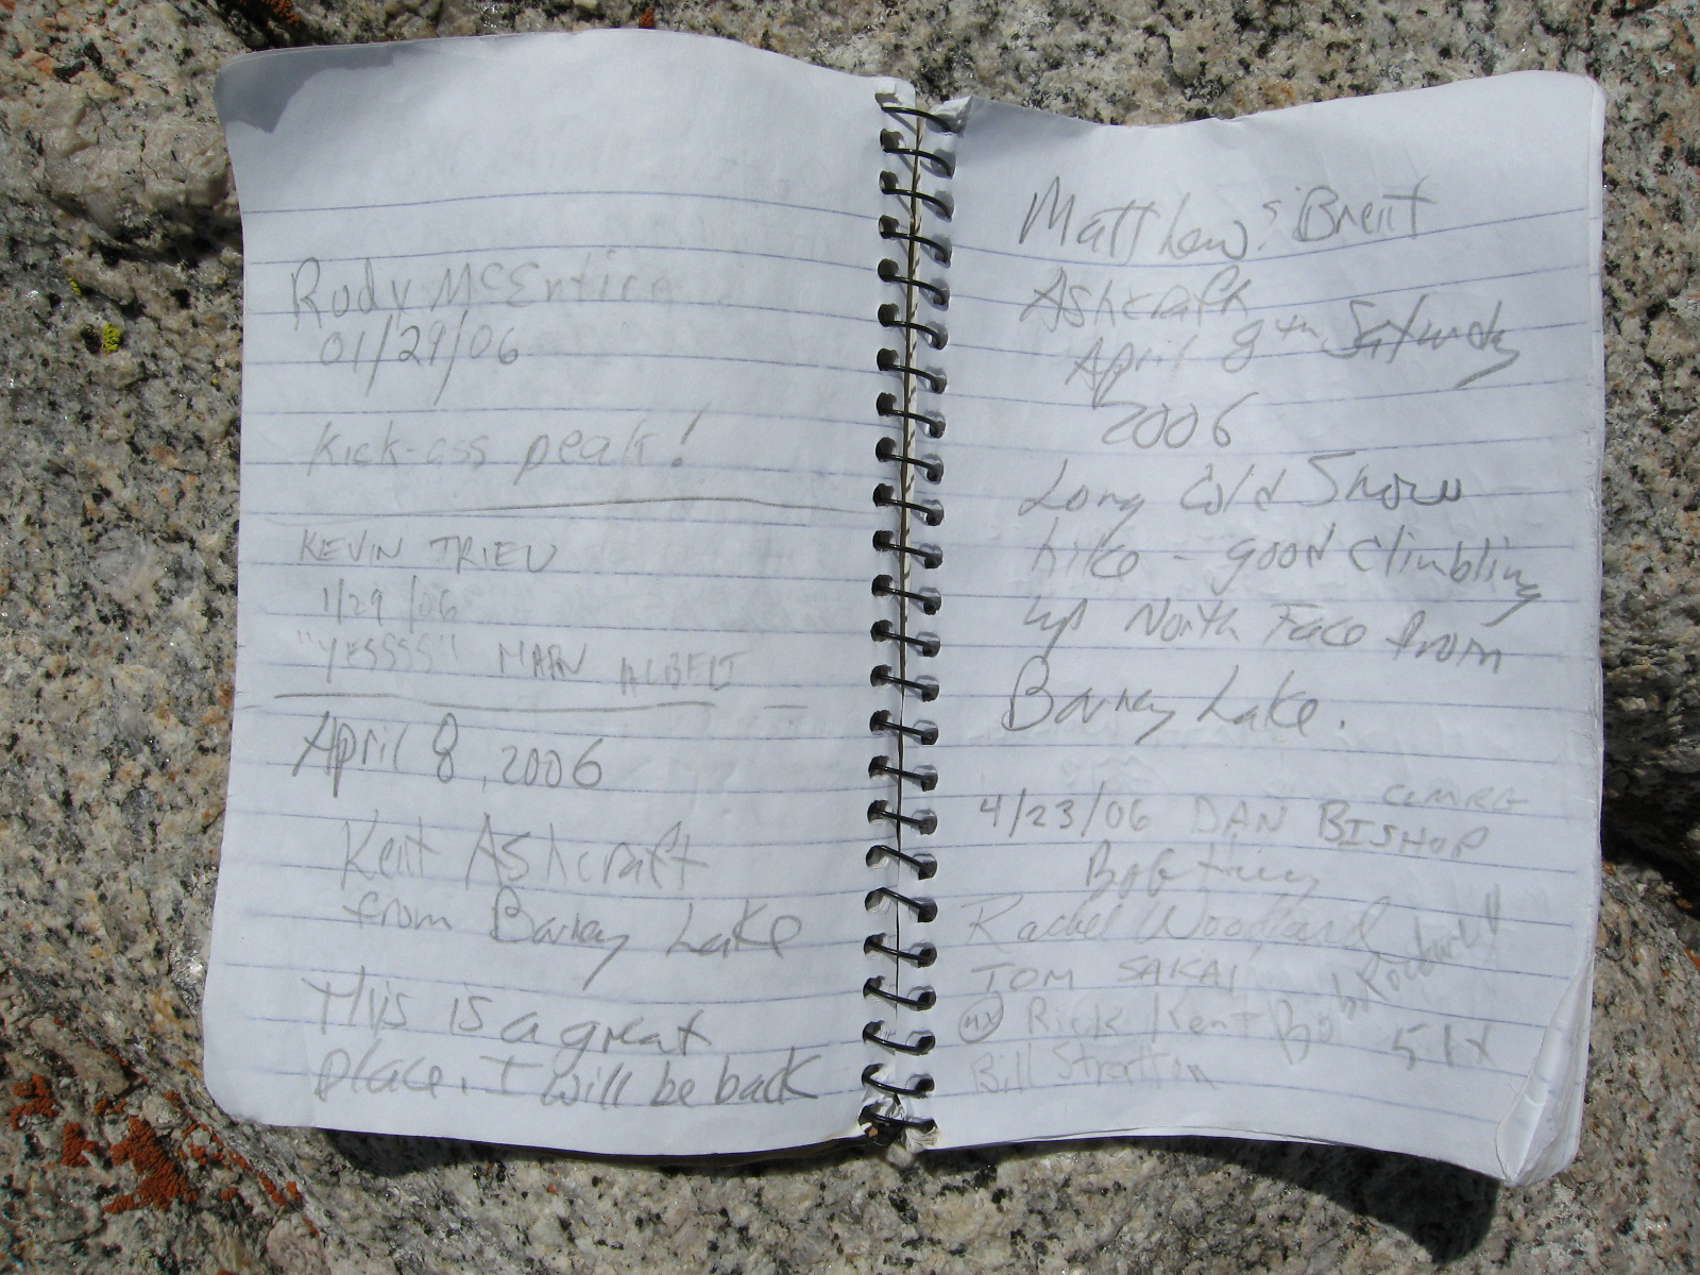 Rody McEntire
01/29/06
Kick-ass peak!
KEVIN TRIEU
1/29/06
"YESSSS"
April 8, 2006
Kent Ashcraft
from Barney Lake
This is a great
place. I will be back
Matthew & Brent
Ashcraft
April 8th Saturday
2006
Long Cold Snow
hike - good climbling
up North Face from
Barney Lake.
4/23/06 DAN BISHOP
Rachel Woodford
TOM SAKAI
Rick Kent Bob Rockwell 51x
Bill Stratton